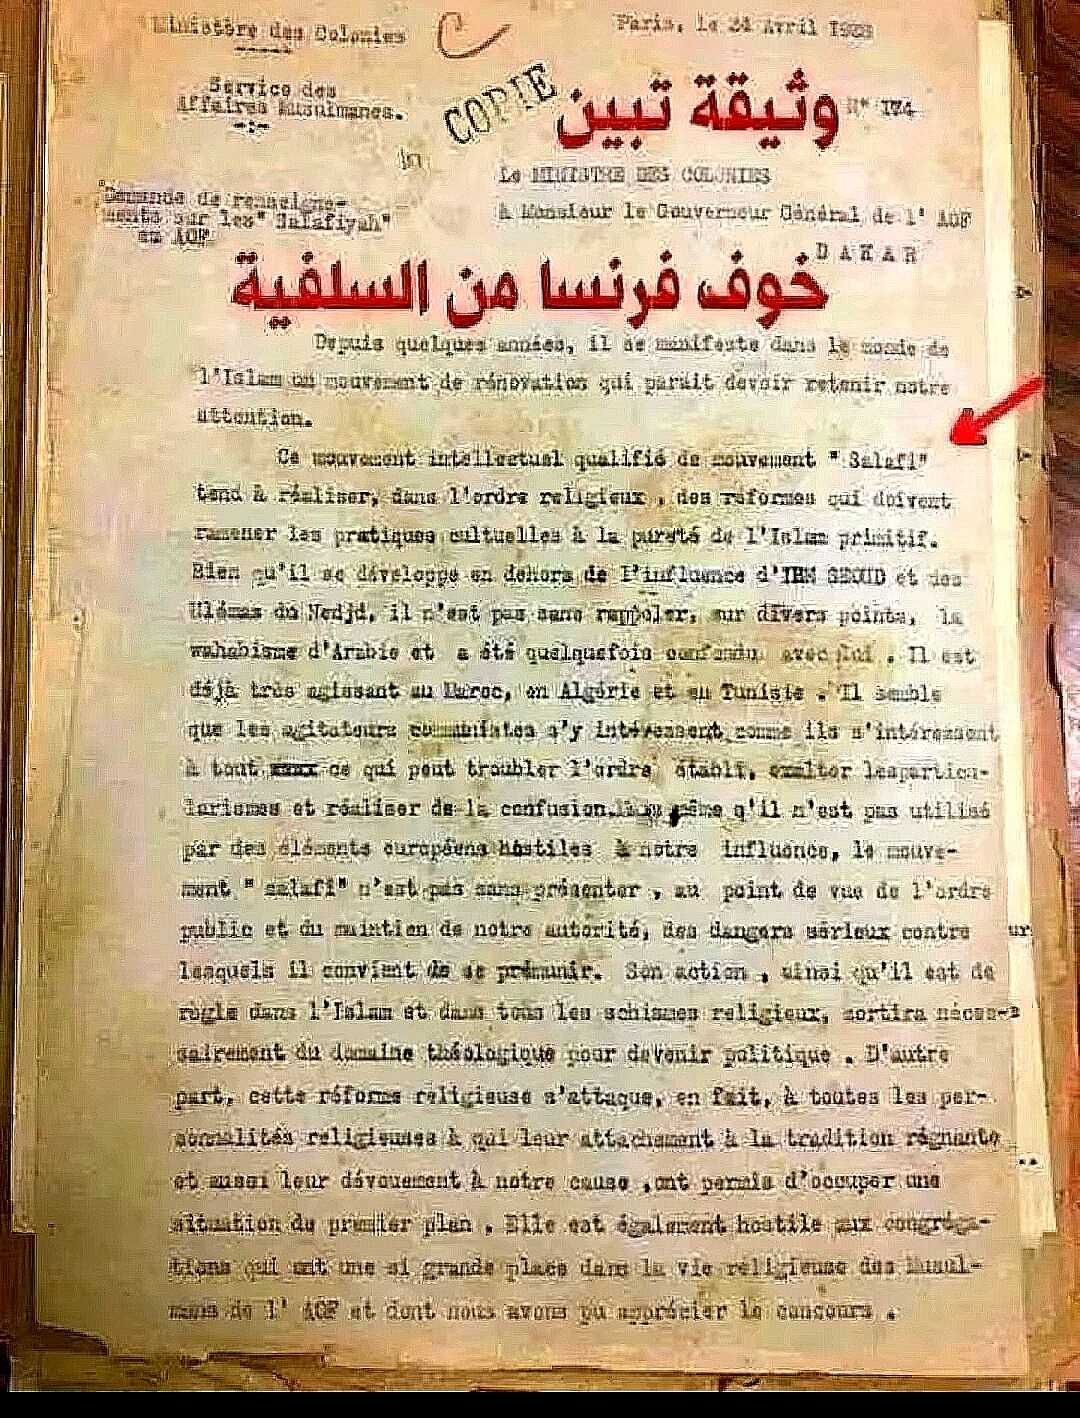 Ministère des Colonies
Paris, le 21 Avril
Service des
Affaires Musulmanes.
COPIE
وثيقة تبين
N° 174
Le MINISTRE DES COLONIES
Demande de renseigne-
ments sur les " Salafiyah"
en AOF
à Monsieur le Gouverneur Général de l' AOF
DAKAR
خوف فرنسا من السلفية
Depuis quelques années, il se manifeste dans le monde de
l'Islam un mouvement de rénovation qui parait devoir retenir notre
attention.
Ce mouvement intellectuel qualifié de mouvement " Salafi"
tend à réaliser, dans l'ordre religieux , des réformes qui doivent
ramener les pratiques cultuelles à la pureté de l'Islam primitif.
Bien qu'il se développe en dehors de l'influence d'IBN SEOUD et des
Ulémas du Nedjd, il n'est pas sans rappeler, sur divers points, le
wahabisme d'Arabie et a été quelquefois confondu avec lui . Il est
déjà très agissant au Maroc, en Algérie et en Tunisie . Il semble
que les agitateurs communistes s'y intéressent comme ils s'intéressent
à tout ce qui peut troubler l'ordre établi, exalter lesparticu-
larismes et réaliser de la confusion. même q'il n'est pas utilisé
par des éléments européens hostiles à notre influence, le mouve-
ment " salafi" n'est pas sans présenter , au point de vue de l'ordre
public et du maintien de notre autorité, des dangers sérieux contre
lesquels il convient de se prémunir. Son action , ainsi qu'il est de
règle dans l'Islam et dans tous les schismes religieux, sortira néces-
sairement du domaine théologique pour devenir politique . D'autre
part, cette réforme religieuse s'attaque, en fait, à toutes les per-
sonnalités religieuses à qui leur attachement à la tradition régnante
et aussi leur dévouement à notre cause ,ont permis d'occuper une
situation de premier plan . Elle est également hostile aux congréga-
tions qui ont une si grande place dans la vie religieuse des Musul-
mans de l' AOF et dont nous avons pu apprécier le concours .